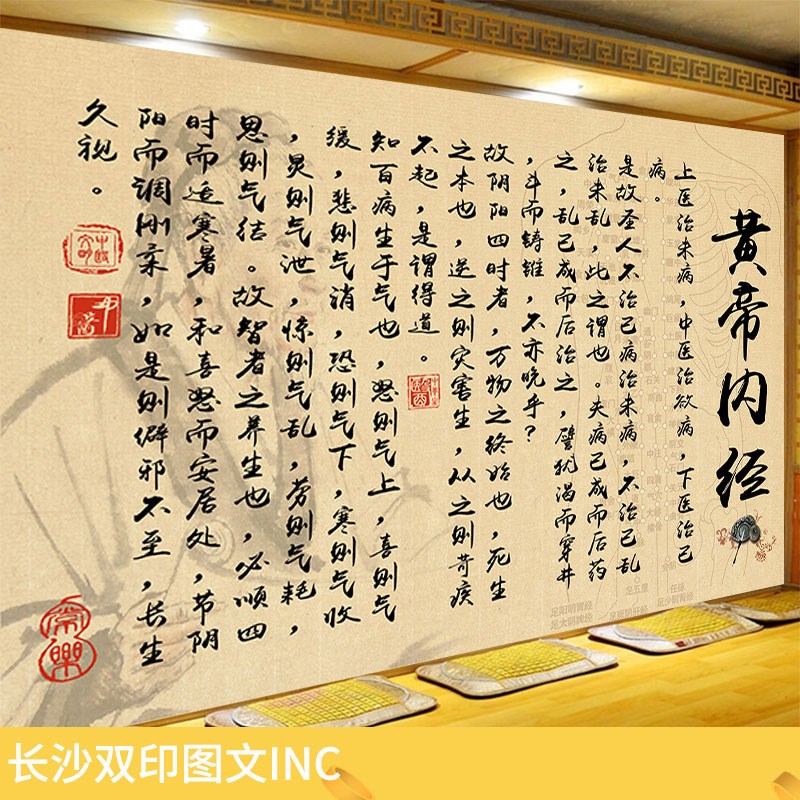 黄帝内经
上医治未病，中医治欲病，下医治已
病。
是故圣人不治已病治未病，不治已乱
治未乱，此之谓也。夫病已成而后药
之，乱已成而后治之，譬犹渴而穿井
，斗而铸锥，不亦晚乎？
故阴阳四时者，万物之终始也，死生
之本也，逆之则灾害生，从之则苛疾
不起，是谓得道。
知百病生于气也，怒则气上，喜则气
缓，悲则气消，恐则气下，寒则气收
，炅则气泄，惊则气乱，劳则气耗，
思则气结。故智者之养生也，必顺四
时而适寒暑，和喜怒而安居处，节阴
阳而调刚柔，如是则僻邪不至，长生
久视。
足五里
任脉
足阳明胃经
足太阴脾经
足厥阴肝经
足少阴肾经
长沙双印图文INC